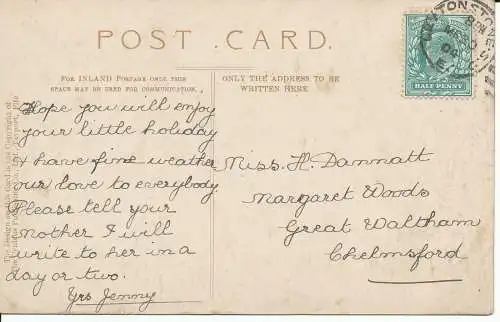 POST CARD.
FOR INLAND POSTAGE ONLY THIS
SPACE MAY BE USED FOR COMMUNICATION.
Hope you will enjoy
your little holiday
& have fine weather
our love to everybody
Please tell your
mother I will
write to her in a
day or two.
Yrs Jenny
ONLY THE ADDRESS TO BE
WRITTEN HERE
Miss. H. Dammatt
Margaret Woods
Great Waltham
Chelmsford
HALF PENNY
LEYTONSTONE
The Design on this Card is the Copyright of